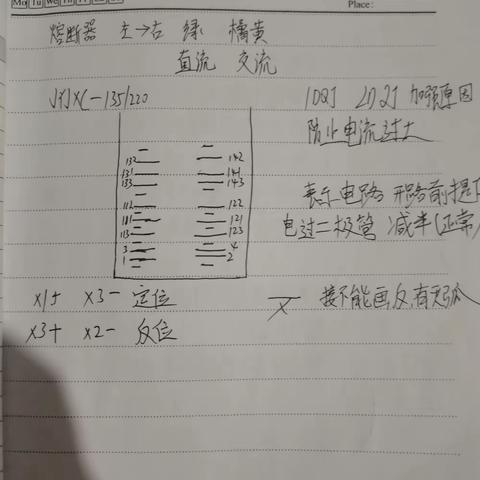 Mo Tu We Th Fr
Place:
熔断器 左→右 绿 橘黄
直流 交流
JYJXC-135/220
1DQJ 2DQJ 加强原因
防止电流过大
132 142
131 141
133 143
112 122
111 121
113 123
3 4
1 2
表示电路 开路前提
电过二极管 减半(正常
X1+ X3- 定位
X3+ X2- 反位
接不能画反,有灭弧